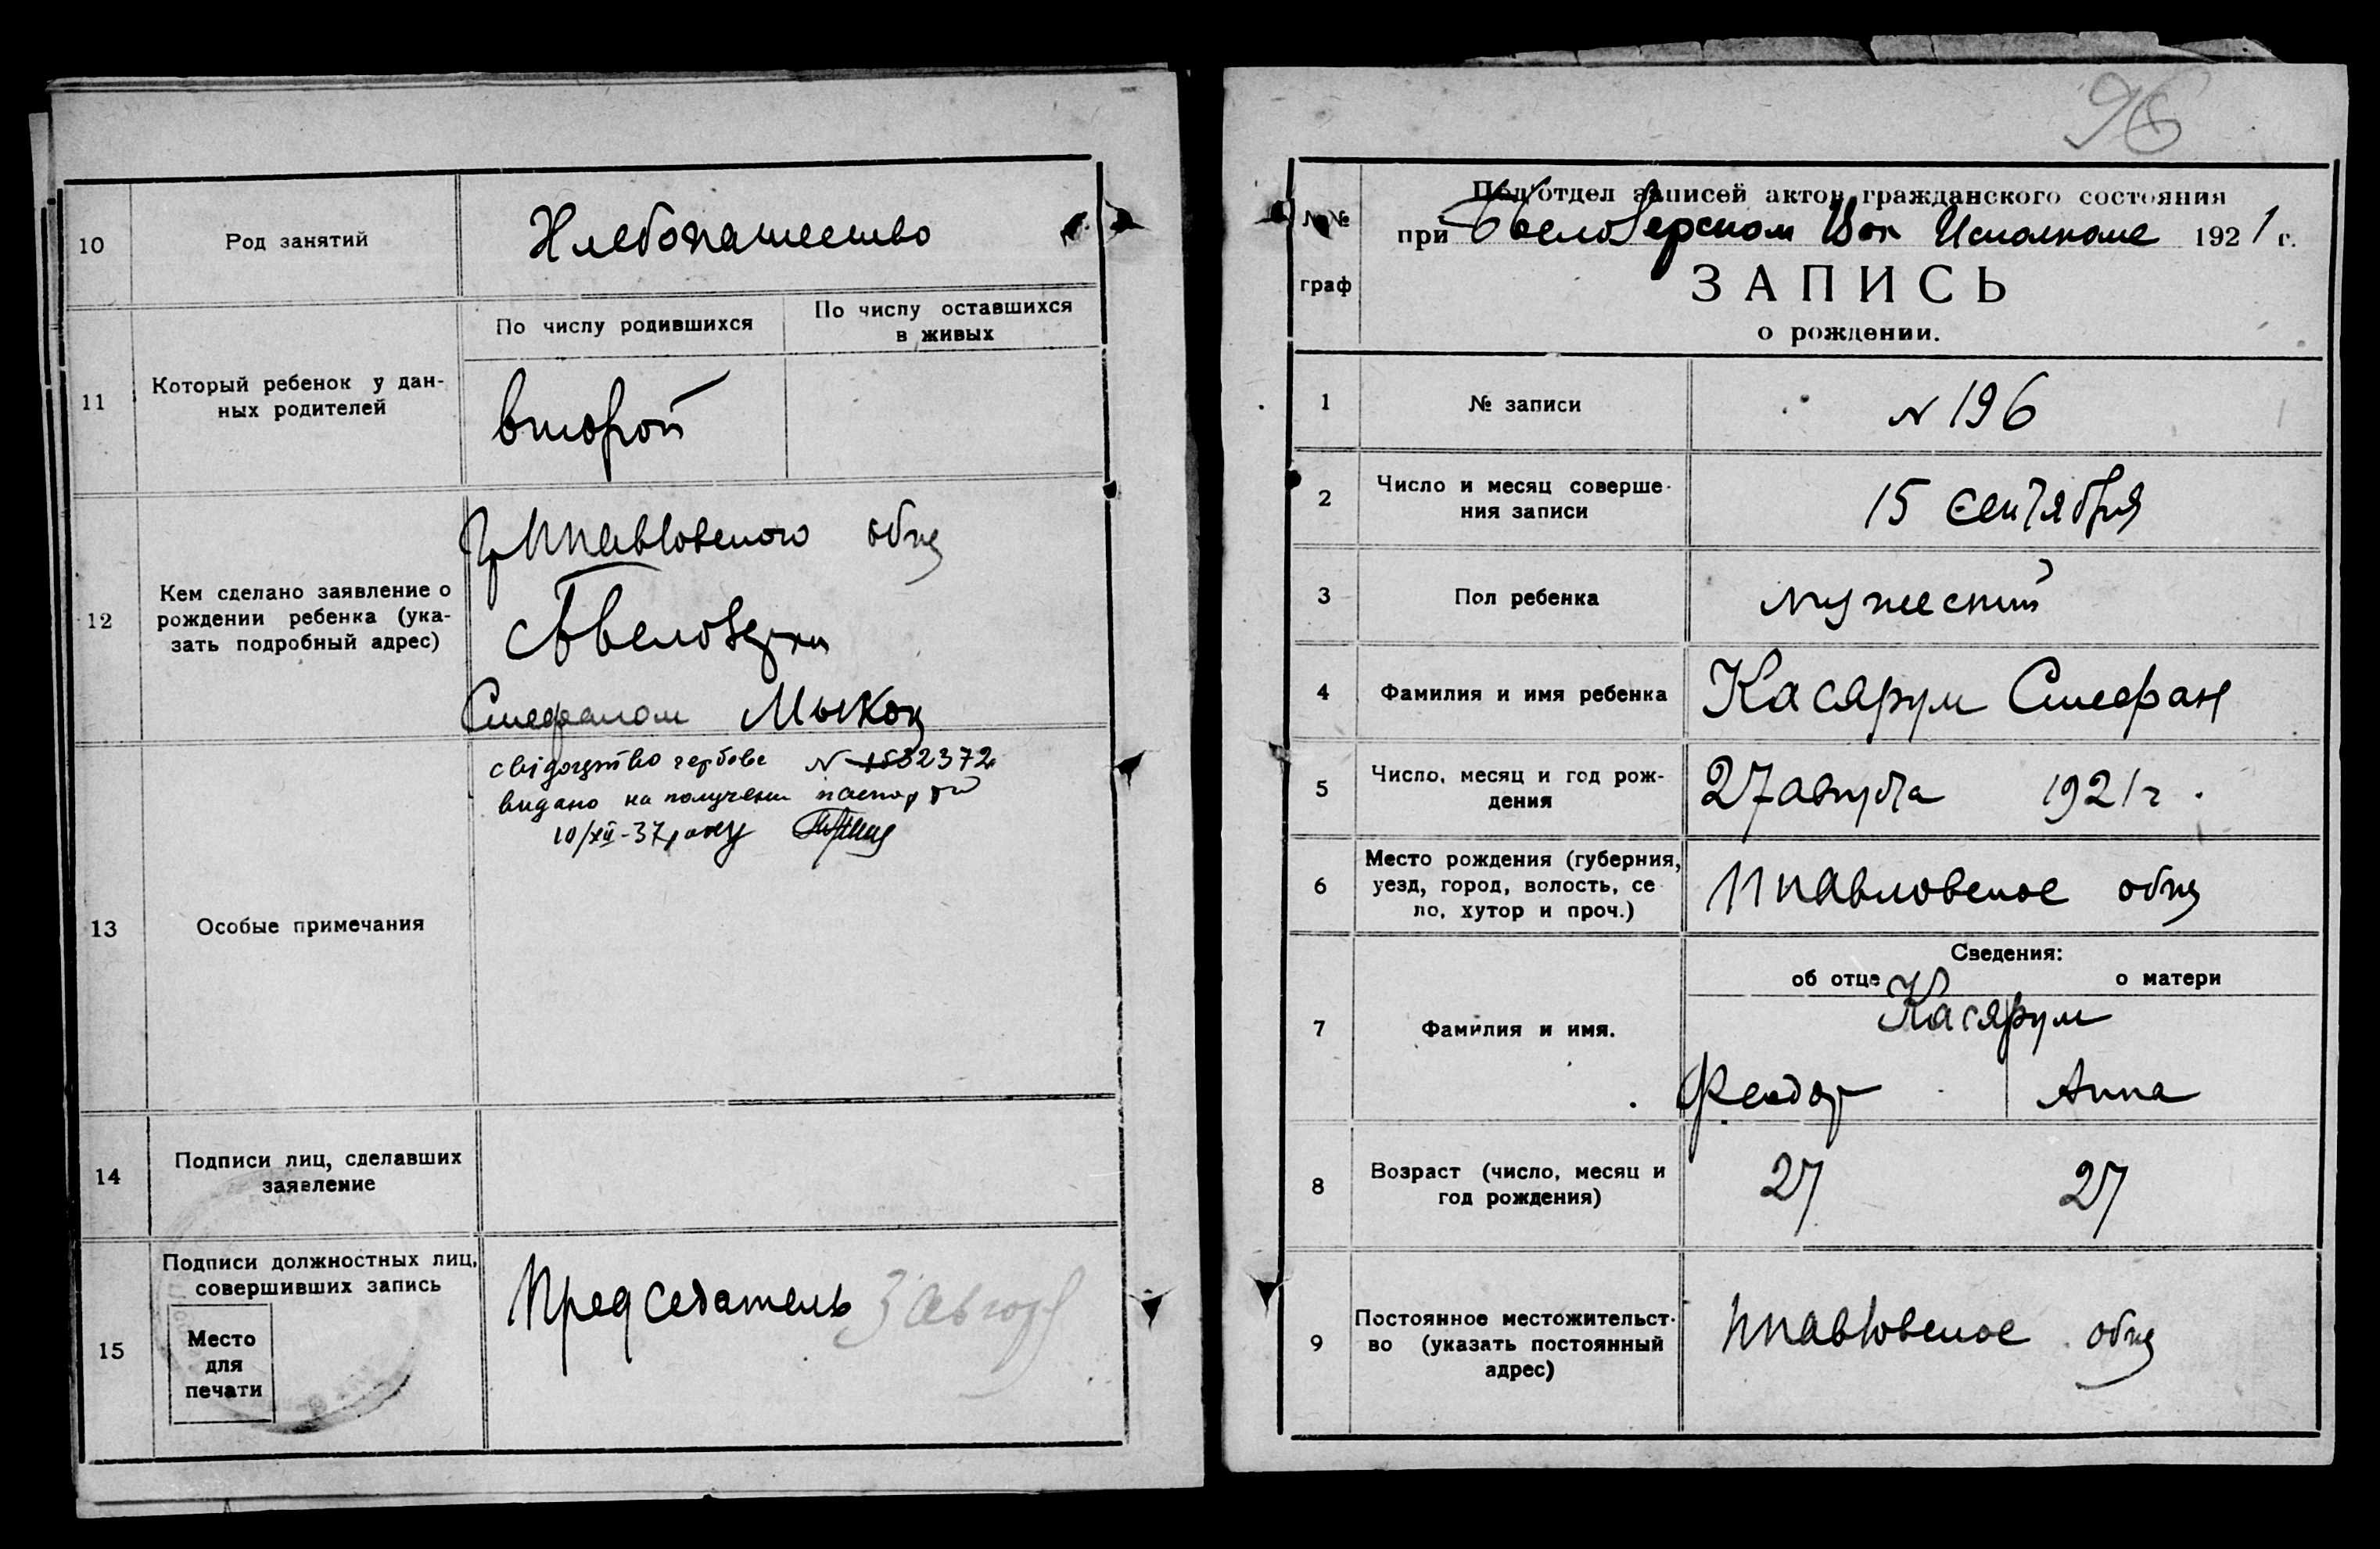 10
Род занятий
Хлебопашество
11
Который ребенок у дан-
ных родителей
По числу родившихся
По числу оставшихся
в живых
второй
12
Кем сделано заявление о
рождении ребенка (ука-
зать подробный адрес)
Гр Ппавловского общ
Стефаном
13
Особые примечания
свідоцтво гербове N 1532372
видано на получени паспорта
10/XII-37 року
14
Подписи лиц, сделавших
заявление
15
Подписи должностных лиц,
совершивших запись
Место
для
печати
Председатель
96
№№
граф
Под'отдел записей актов гражданского состояния
при Бвелозерском Вол Исполкоме 1921 г.
ЗАПИСЬ
о рождении.
1
№ записи
N 196
2
Число и месяц соверше-
ния записи
15 Сентября
3
Пол ребенка
мужеский
4
Фамилия и имя ребенка
Касярум Стефан
5
Число, месяц и год рож-
дения
27 августа 1921 г.
6
Место рождения (губерния,
уезд, город, волость, се
ло, хутор и проч.)
Ппавловское общ
Сведения:
об отце
о матери
7
Фамилия и имя.
Касярум
Феодор
Анна
8
Возраст (число, месяц и
год рождения)
27
27
9
Постоянное местожительст-
во (указать постоянный
адрес)
Ппавловское общ